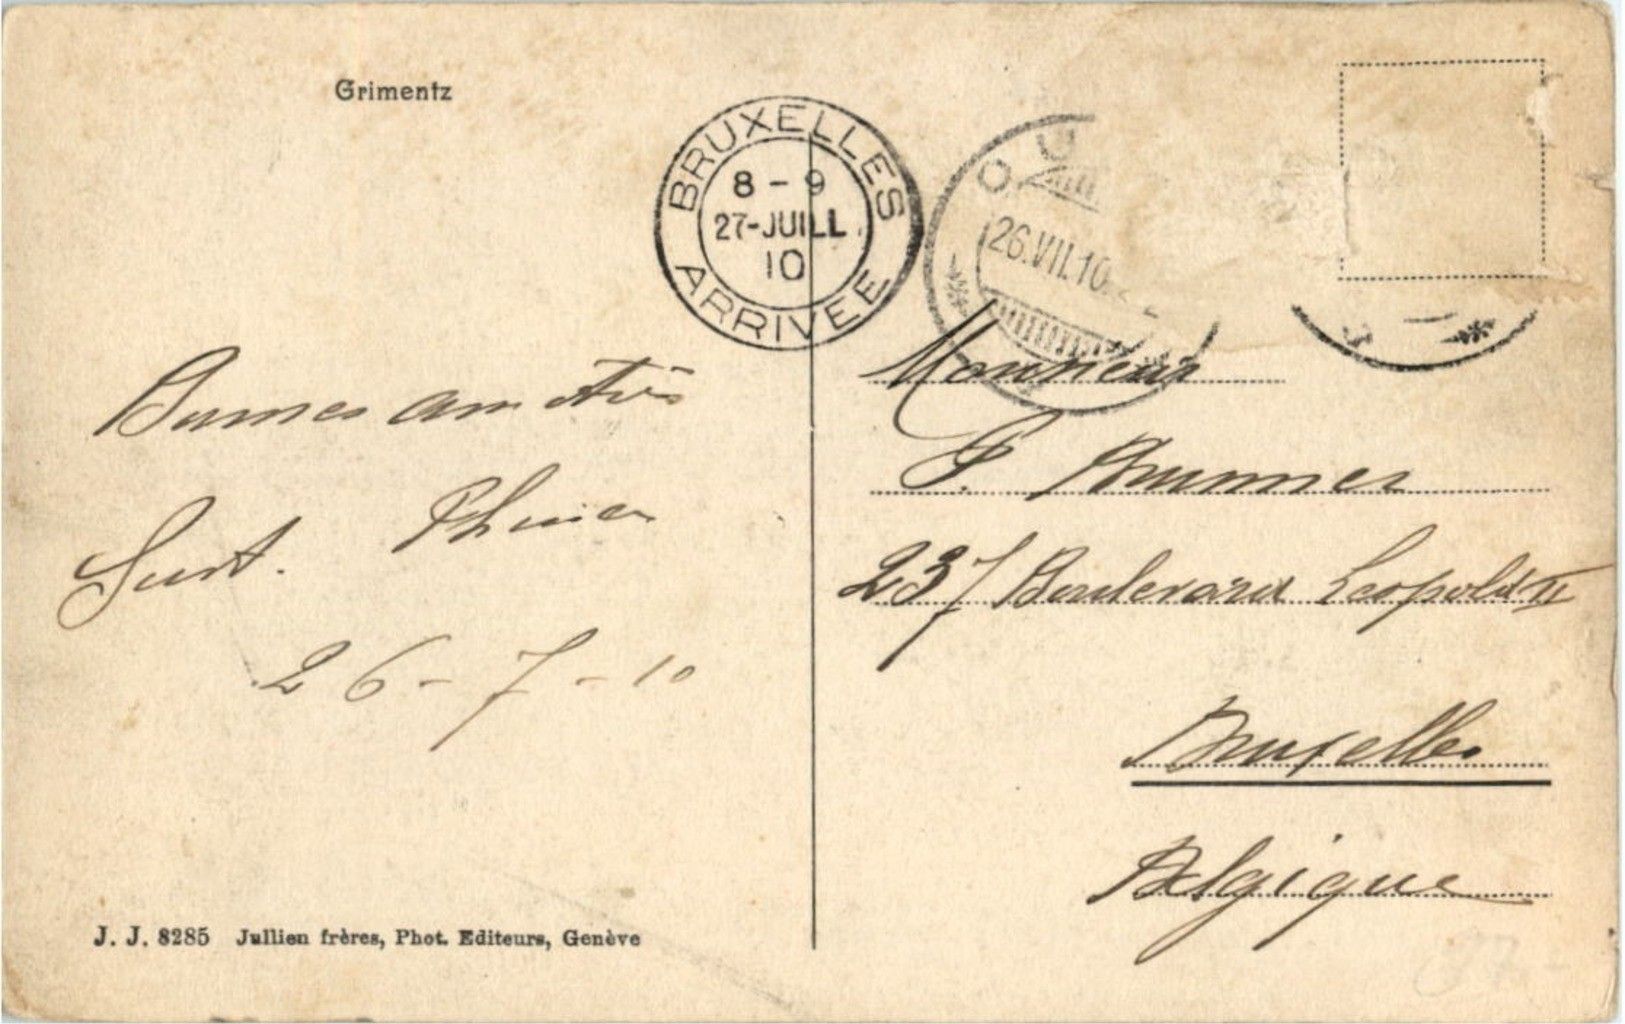 Grimentz
BRUXELLES
8 - 9
27-JUILL
10
ARRIVEE
26.VII.10
Bonnes amitiés
26-7-10
Monsieur
P. Brunner
237 Boulevard Leopold II
Bruxelles
Belgique
J. J. 8285 Jullien frères, Phot. Editeurs, Genève